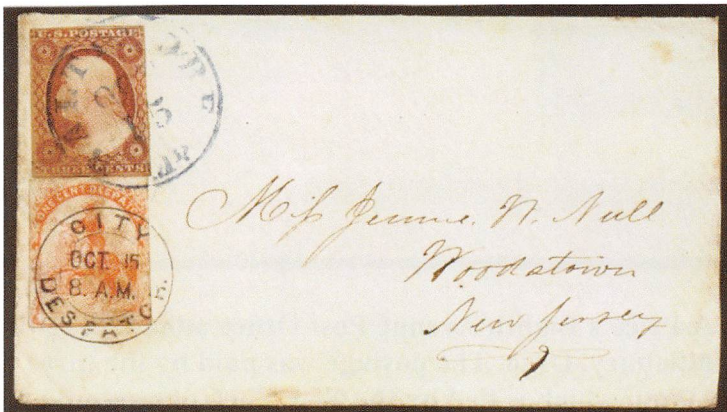 U.S. POSTAGE
THREE CENTS
ONE CENT DESPATCH
CITY
OCT. 15
8. A.M.
DESPATCH.
Miss Jennie. N. Null
Woodstown
New Jersey